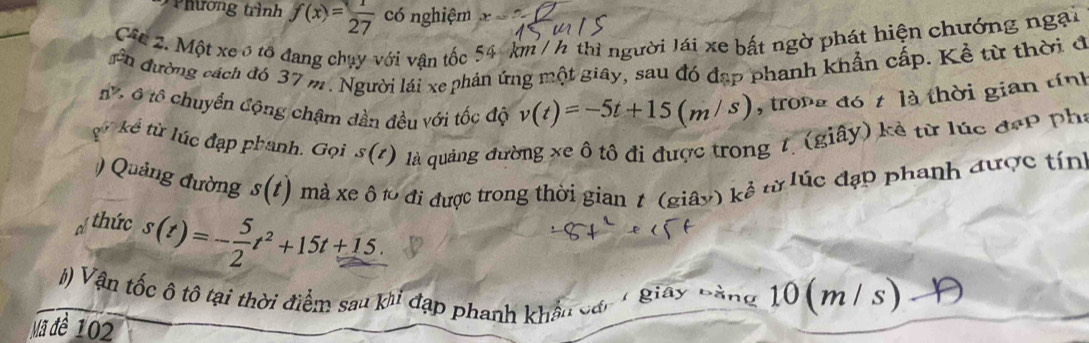 Phương trình f(x) = 1/27 có nghiệm x =
15 m/s
Câu 2. Một xe ô tô đang chạy với vận tốc 54 km / h thì người lái xe bất ngờ phát hiện chướng ngại
trên đường cách đó 37 m. Người lái xe phản ứng một giây, sau đó đạp phanh khẩn cấp. Kể từ thời đ
ô tô chuyển động chậm dần đều với tốc độ v(t) = -5t + 15 (m / s), trong đó t là thời gian tính
kể từ lúc đạp phanh. Gọi s(t) là quảng đường xe ô tô đi được trong t (giây) kể từ lúc đạp pha
) Quảng đường s(t) mà xe ô tô đi được trong thời gian t (giây) kể từ lúc đạp phanh được tính
thức s(t) = -5/2 t² + 15t + 15.
b) Vận tốc ô tô tại thời điểm sau khi đạp phanh khẩn giây bằng 10 (m / s)
Mã đề 102